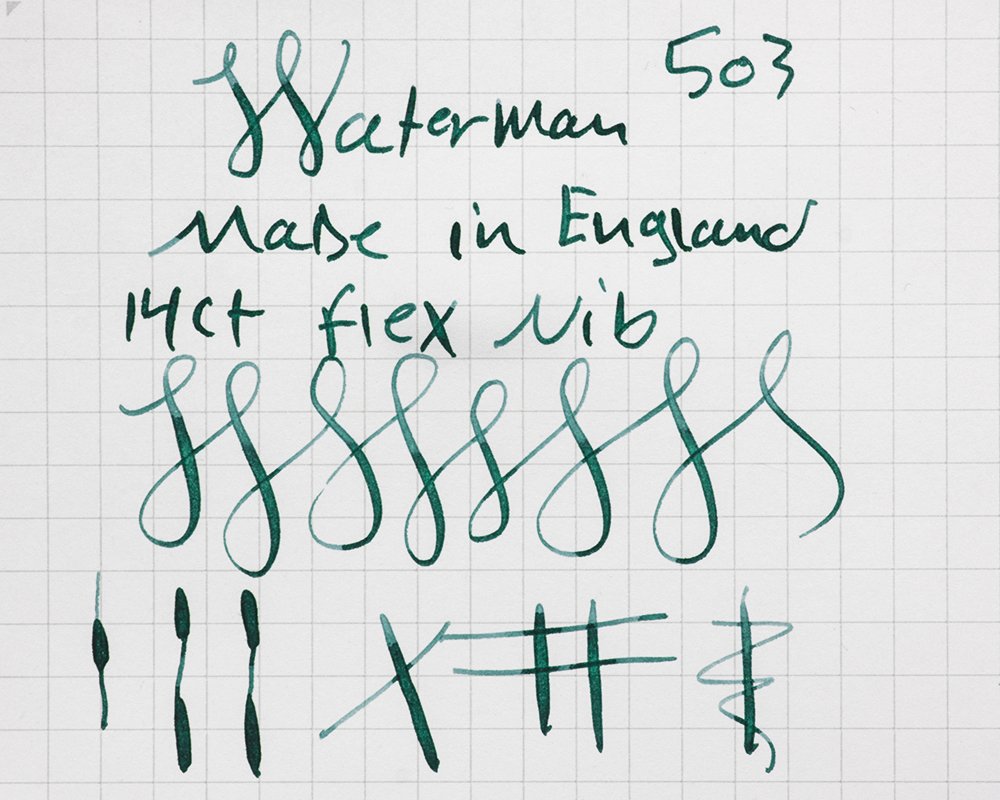 Waterman 503
Made in England
14ct flex Nib